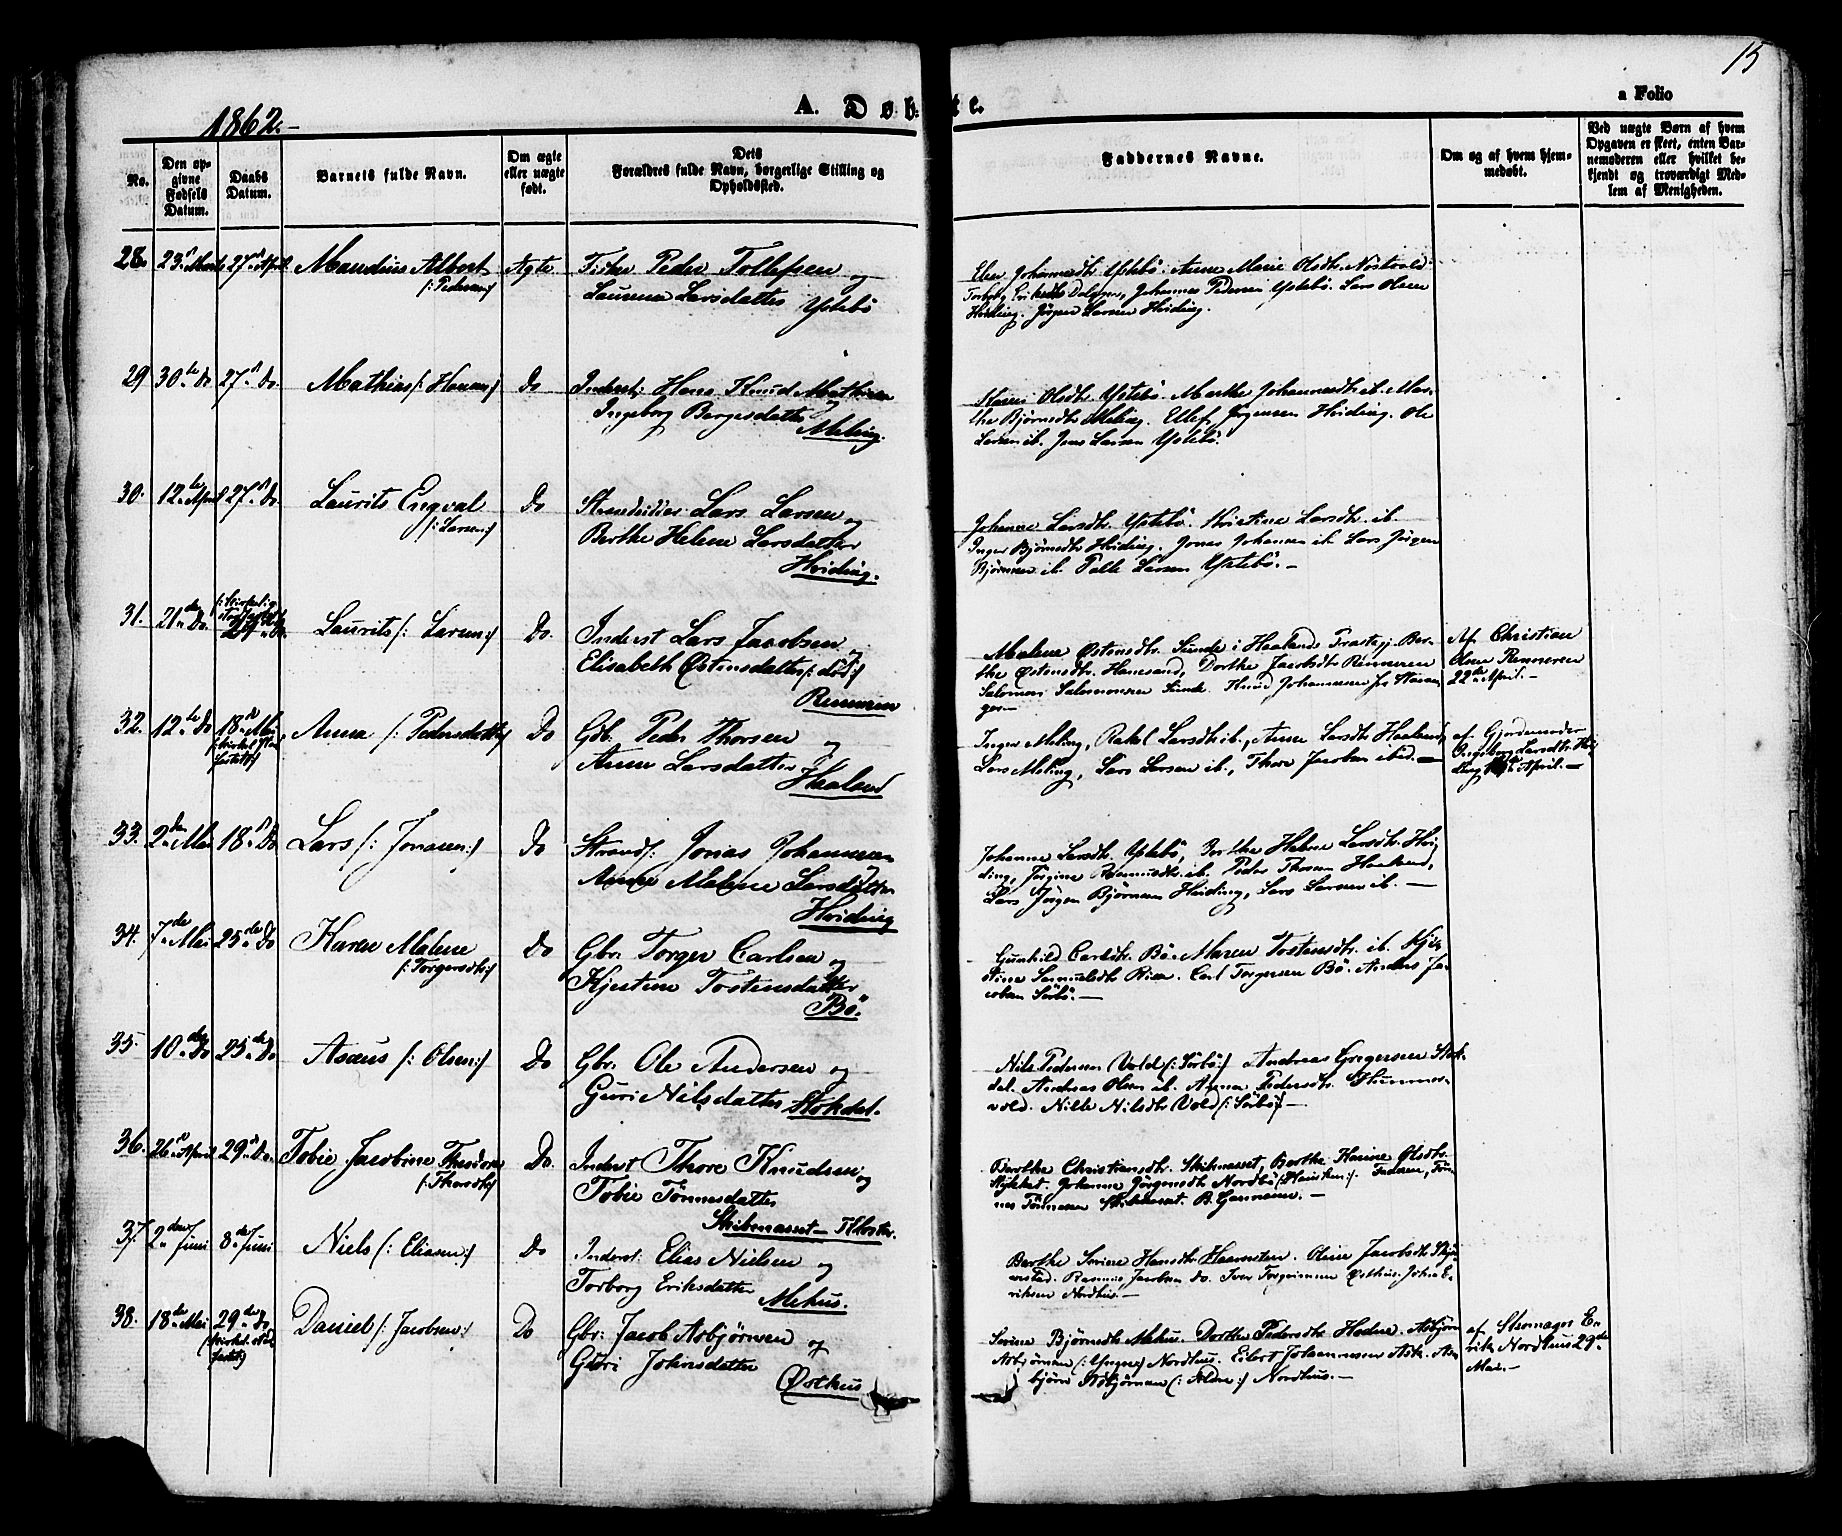 15
1862.-
A. Døbte.
a Folio
No.
Den opgivne Fødsels Datum.
Daabs Datum.
Barnets fulde Navn.
Om ægte eller uægte født.
Dets Forældres fulde Navn, borgerlige Stilling og Opholdssted.
Faddernes Navne.
Om og af hvem hjemmedøbt.
Ved uægte Børn af hvem Opgaven er skeet, enten Barnemoderen eller hvilket bekjendt og troværdigt Medlem af Menigheden.
28. 23 Marts 27 April Albert Ægte Peder Tollefsen og
(: Pedersen :)
Larsdatter Ystebö
Johannesdtr. Ystebö. Anne Marie Olsdtr.
Johannes Pedersen Ystebö. Lars Olsen
Hviding. Jörgen Larsen Hviding.
29 30te Do 27 Do Mathias (: Hansen :) Do Inderst. Hans Knud Mathisen
og
Ingeborg Borgesdatter
Meling.
Olsdtr. Ystebö. Marthe Johannesdtr. ib. Mar-
the Björnsdtr. Meling. Ellef Jörgensen Hviding. Ole
Larsen ib. Jens Larsen Ystebö.
30. 12te April 27 Do Laurits Engval Do Strandsidder Lars Larsen og
(: Larsen :)
Berthe Helene Larsdatter
Hviding.
Johanne Larsdtr. Ystebö. Kristine Larsdtr. ib.
Inger Björnsdtr. Hviding. Jonas Johansen ib. Lars Jörgen
Björnsen ib. Larsen Ystebö. -
31. 21de Do Laurits (: Larsen :) Do. Inderst Lars Jacobsen
og
Elisabeth Östensdatter (: död :)
Rennaren
Malene Östensdtr. Sunde i Haalands Præstegj. Ber-
the Östensdtr. Hanesand, Dorthe Jacobsdtr. Renneren
Salomon Salomonsen Sunde. Knud Johannesen fra Stavan-
ger -
Af Christian
Olsen Renneren
22de April. -
32. 12te Do 18 Mai Anna (: Pedersdatter Do Gbr. Peder Thorsen og
Anne Larsdatter
Haaland
Inger Meling, Rakel Larsdtr. ib., Anne Larsdtr. Haaland,
Lars Meling, Lars Larsen ib., Thore Jacobsen ibid. -
af Gjordemoder
Ingeborg Larsdtr.
April. -
33. 2den Mai 18 Do Lars (: Jonasen :) Do Strands: Jonas Johannesen
Anne Malene Larsdatter
Hviding
Johanne Larsdtr. Ystebö, Berthe Helene Larsdtr. Hvi-
ding, Jörgine Rasmusdtr. ib. Peder Thorsen Haaland,
Lars Jörgen Björnsen Hviding, Lars Larsen ib. -
34. 7de Mai 25de Do Karen Malene Do Gbr. Torger Carlsen og
(: Torgersdtr. :)
Kjestine Tostensdatter
Bö.
Gunhild Carlsdtr. Bö. Maren Tostensdtr. ib. Kje-
stine Samuelsdtr. Carl Torgersen Bö. Anders Ja-
cobsen Sörbö. -
35. 10de Do 25de Do Asæus (: Olsen :) Do Gbr. Ole Andersen og
Guri Nilsdatter Stokdal.
Nils Pedersen Vold (: Sörbö :) Andreas Gregersen Stok-
dal. Andreas Olsen ib. Anna Pedersdtr. Hummer-
vold. Nille Nilsdtr. Vold (: Sörbö :) -
36. 26 April 29 Do. Tobie Jacobine Theodora Do. Inderst Thore Knudsen og
(: Thoresdtr. :)
Tobie Tönnesdatter
Skibenæset - Kloster.
Berthe Christiansdtr. Skibnæset, Berthe Karine Olsdtr.
Johanne Jörgensdtr. Nordbö (: Hausken :). Tön-
nes Tönnesen Skibenæset. B. Garmann. -
37. 2den Juni 8de Juni Niels (: Eliasen :) Do Inderst. Elias Nielsen og
Torborg Eriksdatter
Mekus.
Berthe Serine Hansdtr. Haavarsten. Oline Jacobsdtr.
Rasmus Jacobsen do. Iver Torgrimsen Östhus. John E-
riksen Nordhus. -
38. 18de Mai 29de Do Daniel (: Jacobsen :) Do Gbr. Jacob Asbjörnsen og
Guri Johnsdatter
Östhus
Serine Björnsdtr. Mekus. Dorthe Pedersdtr. Hodne. Asbjörn
Asbjörnsen (: Yngre :) Nordhus. Eilert Johannesen Ask. As-
björn Asbjörnsen (: Ældre :) Nordhus. -
af Skomager E-
rik Nordhus 29de
Mai. -